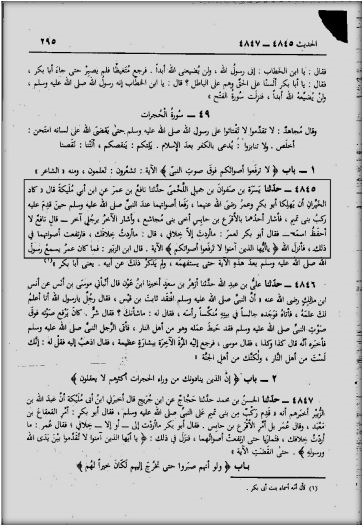 الحديث ٤٨٤٥ – ٤٨٤٧ ٢٩٥
فقال : يا ابن الخطاب : إني رسولُ الله ، ولن يُضيعني الله أبداً . فرجع متغيظاً فلم يصبر حتى جاء أبا بكر
فقال : يا أبا بكر ألسنا على الحق وهم على الباطل ؟ قال : يا ابن الخطاب إنه رسول الله صلى الله عليه وسلم ،
ولن يُضيّعه الله أبداً ، فنزلت سورة الفتح »
٤٩ – سورة الحُجرات
وقال مجاهد : لا تقدموا لا تفتاتوا على رسول الله صلى الله عليه وسلم حتى يقضي الله على لسانه امتحن :
أخلص . ولا تنابزوا : يدعى بالكفر بعد الإسلام . يلتكم : ينقصكم ، ألتنا : نقصنا
١ – باب ﴿ لا ترفعوا أصواتكم فوق صوت النبي ﴾ الآية : تشعرون : تعلمون ، ومنه « الشاعر »
٤٨٤٥ – حدثنا يَسَرَةُ بن صفوان بن جميل اللخمي حدثنا نافع بن عمر عن ابن أبي مليكة قال « كاد
الخيّران أن يهلكا أبو بكر وعمر رضي الله عنهما ، رفعا أصواتهما عند النبي صلى الله عليه وسلم حين قدم عليه
ركب بني تميم ، فأشار أحدهما بالأقرع بن حابس أخي بني مجاشع ، وأشار الآخر برجل آخر – قال نافع لا
أحفظ اسمه – فقال أبو بكر لعمر : ما أردت إلا خلافي ، قال : ما أردت خلافك ، فارتفعت أصواتهما في
ذلك ، فأنزل الله ﴿ يا أيها الذين آمنوا لا ترفعوا أصواتكم ﴾ الآية . قال ابن الزبير : فما كان عمر يسمع رسول
الله صلى الله عليه وسلم بعد هذه الآية حتى يستفهمه ، ولم يذكر ذلك عن أبيه . يعني أبا بكر » (١)
٤٨٤٦ – حدثنا علي بن عبد الله حدثنا أزهر بن سعد أخبرنا ابن عون قال أنبأني موسى بن أنس عن أنس
ابن مالك رضي الله عنه « أن النبي صلى الله عليه وسلم افتقد ثابت بن قيس ، فقال رجل يا رسول الله أنا أعلم
لك علمه ، فأتاه فوجده جالساً في بيته منكساً رأسه ، فقال له : ما شأنك ؟ فقال شر . كان يرفع صوته فوق
صوت النبي صلى الله عليه وسلم فقد حبط عمله وهو من أهل النار ، فأتى الرجل النبي صلى الله عليه وسلم
فأخبره أنه قال كذا وكذا ، فقال موسى ، فرجع إليه المرة الآخرة ببشارة عظيمة ، فقال اذهب إليه فقل له : إنك
لست من أهل النار ، ولكنك من أهل الجنة »
٢ – باب ﴿ إن الذين ينادونك من وراء الحجرات أكثرهم لا يعقلون ﴾
٤٨٤٧ – حدثنا الحسن بن محمد حدثنا حجاج عن ابن جريج قال أخبرني ابن أبي مليكة أن عبد الله بن
الزبير أخبرهم أنه « قدم ركب من بني تميم على النبي صلى الله عليه وسلم ، فقال أبو بكر : أمر القعقاع بن
معبد ، وقال عمر بل أمر الأقرع بن حابس . فقال أبو بكر ما أردت إلى – أو إلا – خلافي ؛ فقال عمر : ما
أردت خلافك ، فتماريا حتى ارتفعت أصواتهما ، فنزل في ذلك : ﴿ يا أيها الذين آمنوا لا تقدموا بين يدى الله
ورسوله ﴾ . حتى انقضت الآية »
باب ﴿ ولو أنهم صبروا حتى تخرج إليهم لكان خيراً لهم ﴾
(١) لأن أمه أسماء بنت أبي بكر .